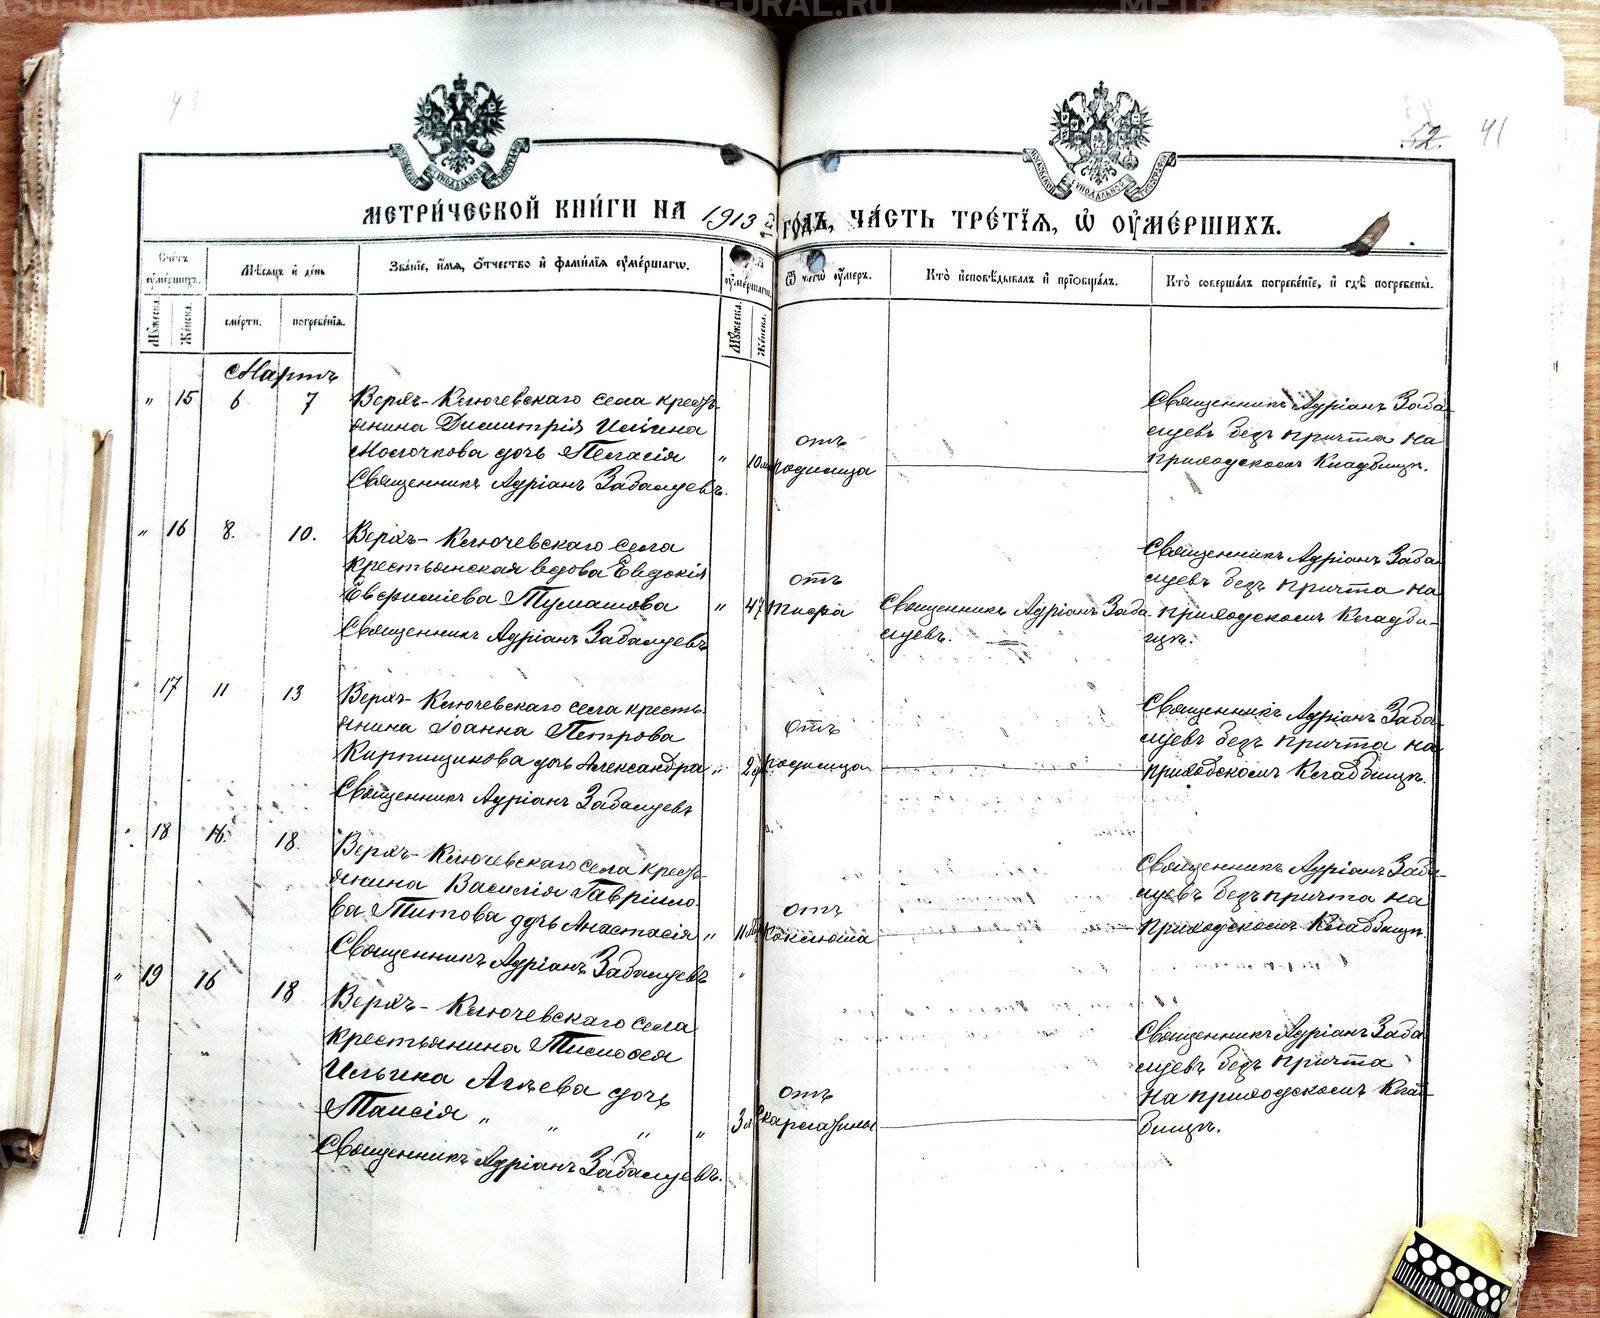 METRIKI.GASU-URAL.RU
52. 41
МЕТРИ́ЧЕСКОЙ КНИ́ГИ НА 1913 ГО́ДЪ, ЧА́СТЬ ТРЕ́ТЇѦ, Ѡ҆ ОУ҆МЕ́РШИХЪ.
Сче́тъ оу҆ме́ршихъ.
Мꙋ́жеска.
Же́нска.
Мѣ́сѧцъ и҆ де́нь
сме́рти.
погребе́нїѧ.
Зва́нїе, и҆́мѧ, ѻ҆́тчество и҆ фами́лїѧ оу҆ме́ршагѡ.
оу҆ме́ршагѡ.
Мꙋ́жеска.
Же́нска.
Ѿ чегѡ̀ оу҆́меръ.
Кто̀ и҆сповѣ́дывалъ и҆ прїѡбща́лъ.
Кто̀ соверша́лъ погребе́нїе, и҆ гдѣ̀ погребены̀.
Мартъ
" 15 6 7
Верхъ-Ключевскаго села кресть-
янина Димитрія Ильина
Молочкова дочь Пелагія
Священникъ Адріанъ Забалуевъ.
" 10 м
отъ
родимца
Священникъ Адріанъ Заба-
луевъ безъ причта на
приходскомъ кладбищѣ.
" 16 8. 10.
Верхъ-Ключевскаго села
крестьянская вдова Евдокія
Евфиміева Тумашова
Священникъ Адріанъ Забалуевъ
" 47
отъ
тифа
Священникъ Адріанъ Заба-
луевъ.
Священникъ Адріанъ Заба-
луевъ безъ причта на
приходскомъ кладби-
щѣ.
" 17 11 13
Верхъ-Ключевскаго села кресть-
янина Іоанна Петрова
Кирпищикова дочь Александра
Священникъ Адріанъ Забалуевъ
" 2
отъ
родимца
Священникъ Адріанъ Заба-
луевъ безъ причта на
приходскомъ кладбищѣ.
" 18 16. 18.
Верхъ-Ключевскаго села кресть-
янина Василія Гавріило-
ва Титова дочь Анастасія
Священникъ Адріанъ Забалуевъ
" 11
отъ
коклюша
Священникъ Адріанъ Заба-
луевъ безъ причта на
приходскомъ кладбищѣ.
" 19 16 18
Верхъ-Ключевскаго села
крестьянина Тимофея
Ильина Агѣева дочь
Таисія " " "
Священникъ Адріанъ Забалуевъ.
" 3
отъ
скарлатины
Священникъ Адріанъ Заба-
луевъ безъ причта
на приходскомъ клад-
бищѣ.